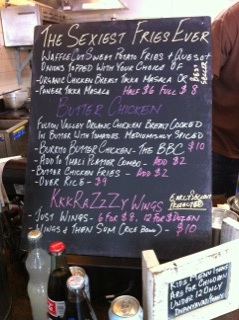 The Sexiest Fries Ever
Waffle Cut Sweet Potato Fries + Queso +
Onions Topped With Your Choice Of
- Organic Chicken Breast Tikka Masala or
- Paneer Tikka Masala Half $6 Full $8
Best Seller
Butter Chicken
Fulton Valley Organic Chicken Breast Cooked
In Butter With Tomatoes. Mediumously Spiced
- Burrito Butter Chicken - The BBC $10
- Add To Thali Platter Combo - Add $2
- Butter Chicken Fries - Add $2
- Over Rice - $9
KkkRaZzZy Wings
- Just Wings - 6 For $8. 12 For $ Dozen
- Wings + Them Sum (Rice Bowl) - $10
Kids Menu Items
Are For Children
Under 12 Only